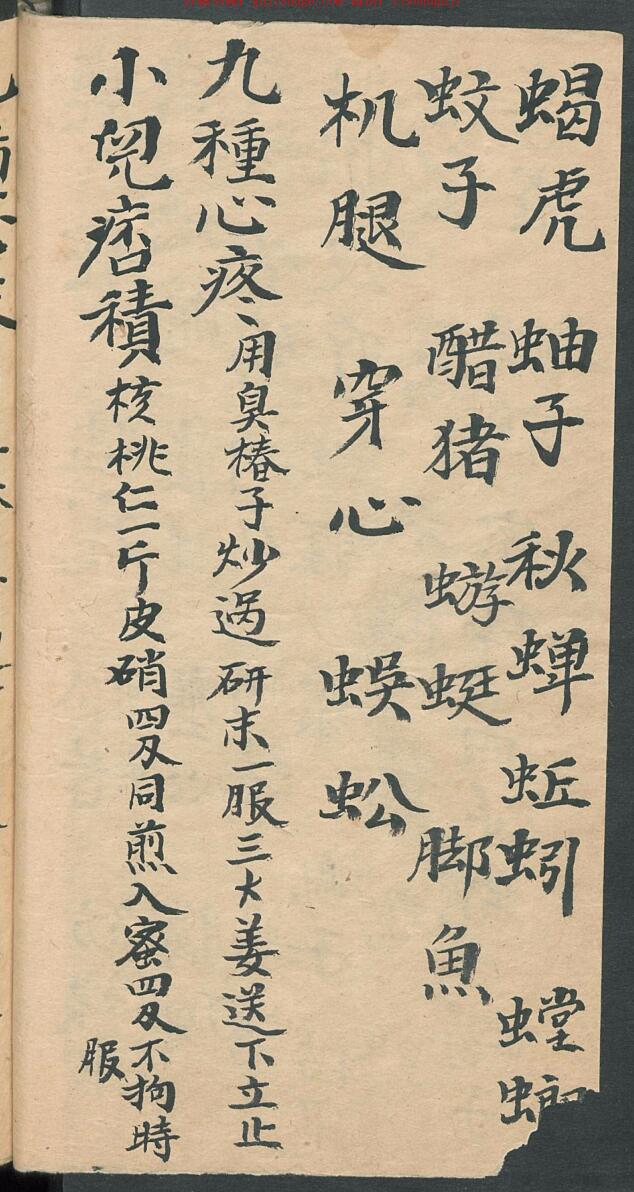 蝎虎 蚰子 秋蝉 蚯蚓 螳螂
蚊子 醋猪 蝣蜓 脚魚
机腿 穿心 蜈蚣
九種心疼用臭椿子炒过研末一服三大姜送下立止
小児痞積核桃仁一斤皮硝四及同煎入蜜四及不拘時
服